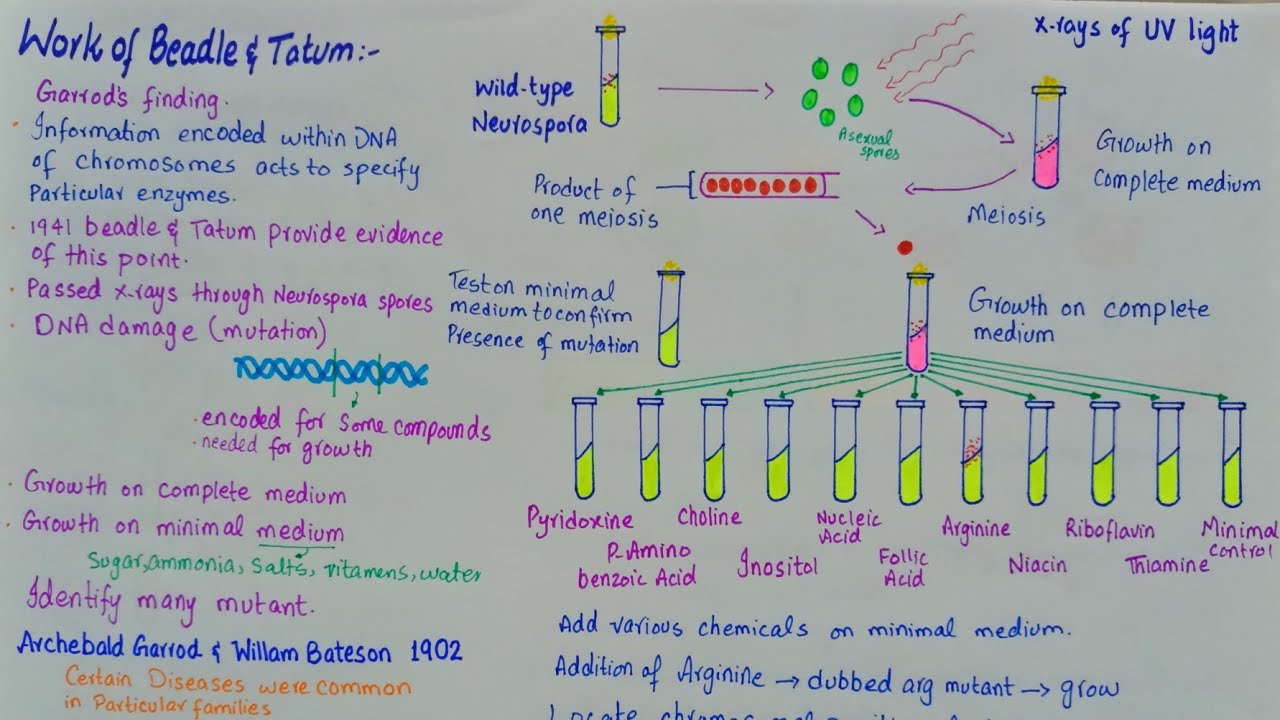 Work of Beadle & Tatum:-
Garrod's finding.
· Information encoded within DNA
of chromosomes acts to specify
Particular enzymes.
· 1941 beadle & Tatum provide evidence
of this point.
· Passed x-rays through Neurospora spores
· DNA damage (mutation)
· encoded for some compounds
· needed for growth
· Growth on complete medium
· Growth on minimal medium
Sugar, ammonia, Salts, vitamens, water
Identify many mutant.
Archebald Garrod & Willam Bateson 1902
Certain Diseases were common
in Particular families
Wild-type
Neurospora
Asexual
spores
X-rays of UV light
Growth on
complete medium
Product of
one meiosis
Meiosis
Test on minimal
medium to confirm
Presence of mutation
Growth on complete
medium
Pyridoxine
P-Amino
benzoic Acid
Choline
Inositol
Nucleic
Acid
Follic
Acid
Arginine
Niacin
Riboflavin
Thiamine
Minimal
control
Add various chemicals on minimal medium.
Addition of Arginine → dubbed arg mutant → grow
Locate